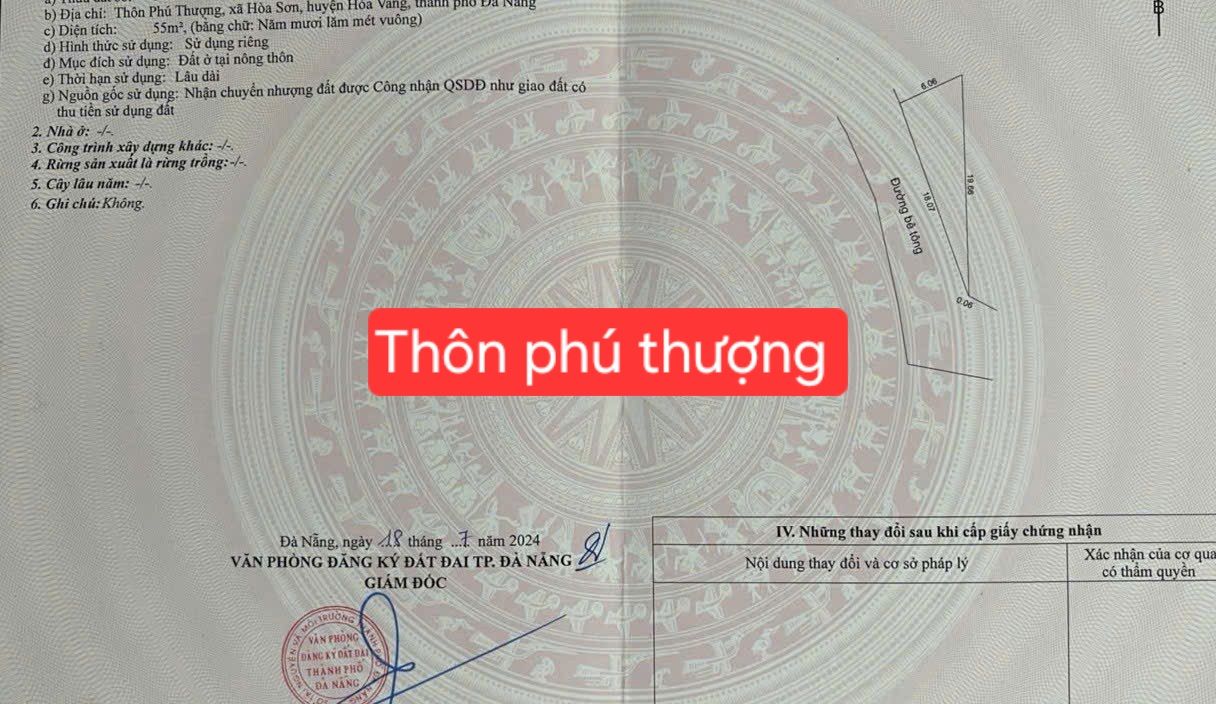 b) Địa chỉ: Thôn Phú Thượng, xã Hòa Sơn, huyện Hòa Vang, thành phố Đà Nẵng
c) Diện tích: 55m², (bằng chữ: Năm mươi lăm mét vuông)
d) Hình thức sử dụng: Sử dụng riêng
đ) Mục đích sử dụng: Đất ở tại nông thôn
e) Thời hạn sử dụng: Lâu dài
g) Nguồn gốc sử dụng: Nhận chuyển nhượng đất được Công nhận QSDĐ như giao đất có
thu tiền sử dụng đất
2. Nhà ở: -/-.
3. Công trình xây dựng khác: -/-.
4. Rừng sản xuất là rừng trồng: -/-.
5. Cây lâu năm: -/-.
6. Ghi chú: Không.
B
6.06
19.66
18.07
Đường bê tông
0.06
Thôn phú thượng
Đà Nẵng, ngày 18 tháng ..7 năm 2024
VĂN PHÒNG ĐĂNG KÝ ĐẤT ĐAI TP. ĐÀ NẴNG
GIÁM ĐỐC
VĂN PHÒNG
ĐĂNG KÝ ĐẤT ĐAI
THÀNH PHỐ
ĐÀ NẴNG
IV. Những thay đổi sau khi cấp giấy chứng nhận
Nội dung thay đổi và cơ sở pháp lý
Xác nhận của cơ qua
có thẩm quyền